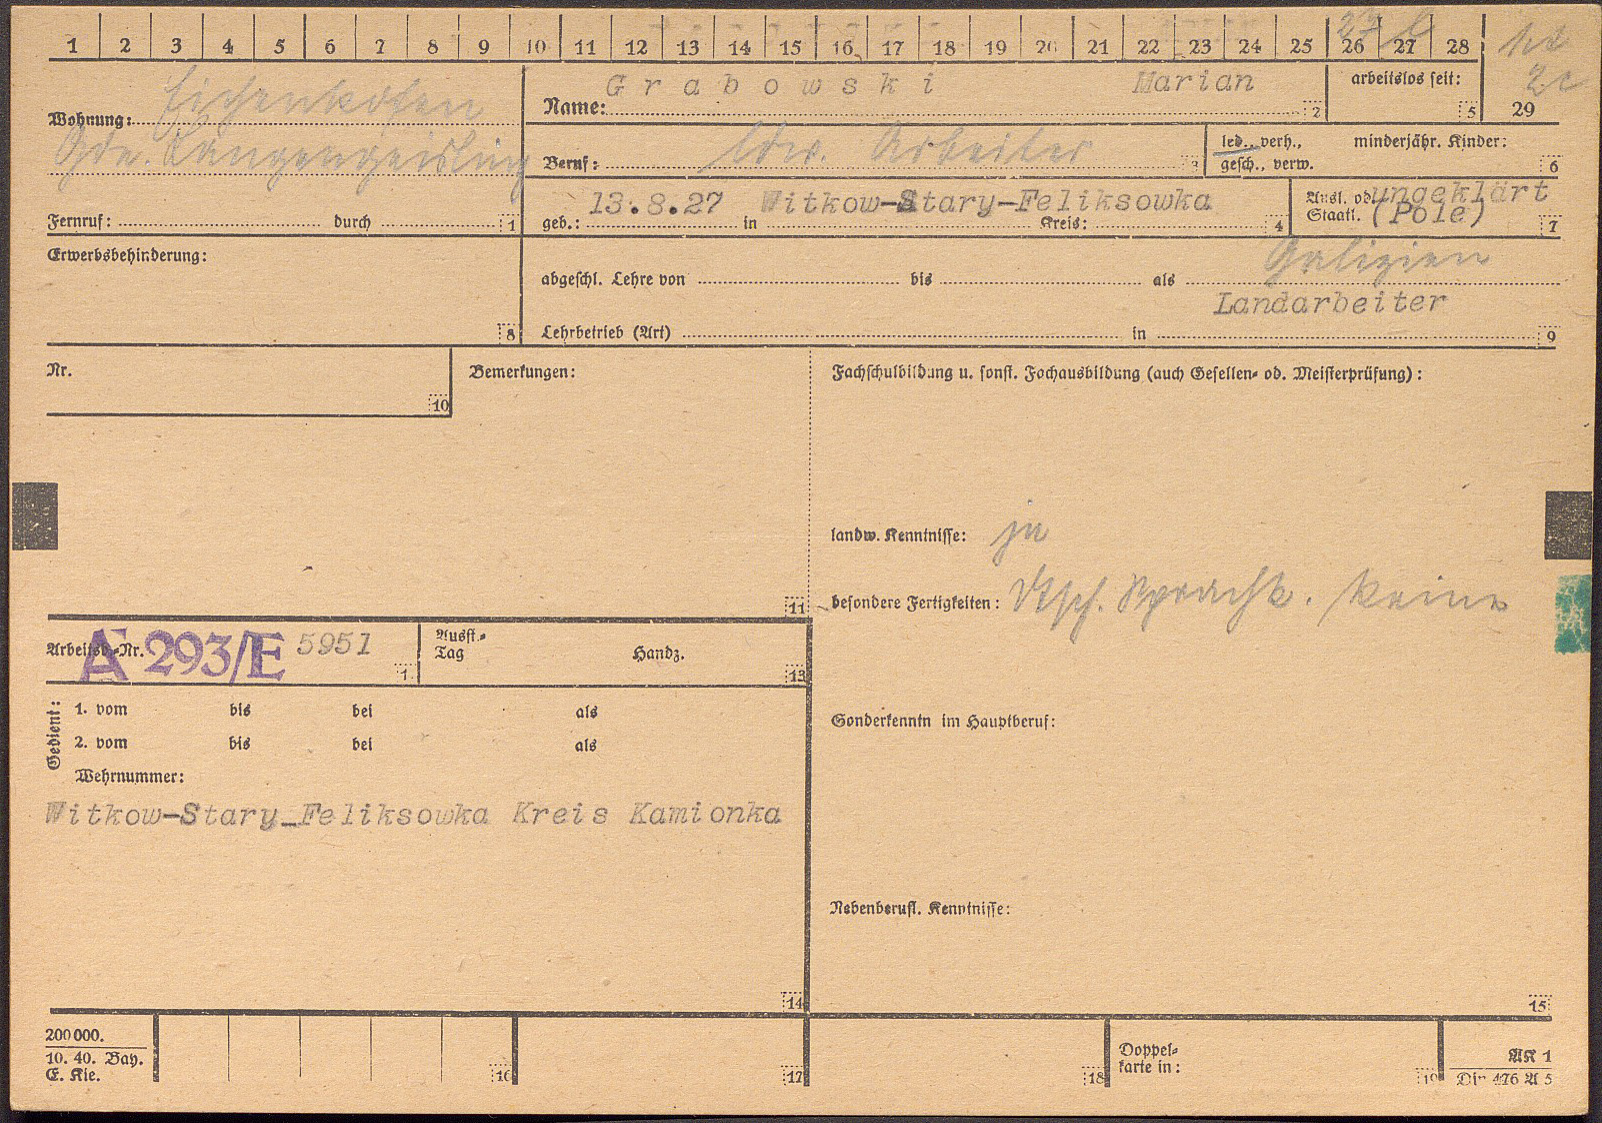 1 2 3 4 5 6 7 8 9 10 11 12 13 14 15 16 17 18 19 20 21 22 23 24 25 26 27 28 29
Wohnung: Eichenkofen
Gde. Langengeisling
Fernruf: durch 1
Name: Grabowski Marian 2
arbeitslos seit: 5
Beruf: ldw. Arbeiter 3
led., verh.,
gesch., verw.
minderjähr. Kinder: 6
geb.: 13.8.27 in Witkow-Stary-Feliksowka Kreis: 4
Ausl. od. ungeklärt
Staatl. (Pole) 7
Erwerbsbehinderung: 8
Galizien
abgeschl. Lehre von bis als
Landarbeiter
Lehrbetrieb (Art) in 9
Nr. 10
Bemerkungen: 11
Fachschulbildung u. sonst. Fachausbildung (auch Gesellen- od. Meisterprüfung):
landw. Kenntnisse: ja
besondere Fertigkeiten: Dtsch. Sprachk. keine
Arbeitsb.-Nr. A 293/E 5951
Ausst.-
Tag Handz. 13
Gedient:
1. vom bis bei als
2. vom bis bei als
Wehrnummer:
Witkow-Stary_Feliksowka Kreis Kamionka
14
Sonderkenntn im Hauptberuf:
Nebenberufl. Kenntnisse:
15
200000.
10. 40. Bay.
E. Kie.
16 17 18
Doppel-
karte in: 19
AK 1
Din 476 A 5